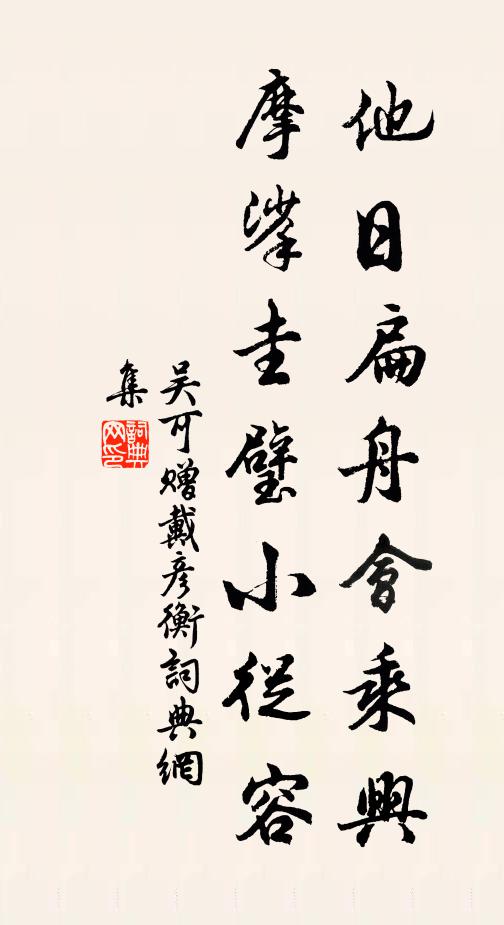 他日扁舟會乘興
摩挲圭璧小從容
吳可贈戴彥衡詞典網
集
詞典
网印